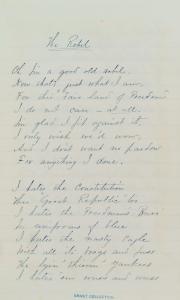 The Rebel
Oh I'm a good old rebel.
Now that's just what I am.
For this "Fair Land of Freedom"
I do not care — at all.
I'm glad I fit against it,
I only wish we'd won,
And I don't want no pardon
For anything I done.
I hates the Constitution
This Great Republic too
I hates the Freedmans Buro
In uniforms of blue
I hates the nasty eagle
With all its brags and fuss
The lyin' thievin Yankees
I hates em wuss and wuss
GRANT COLLECTION